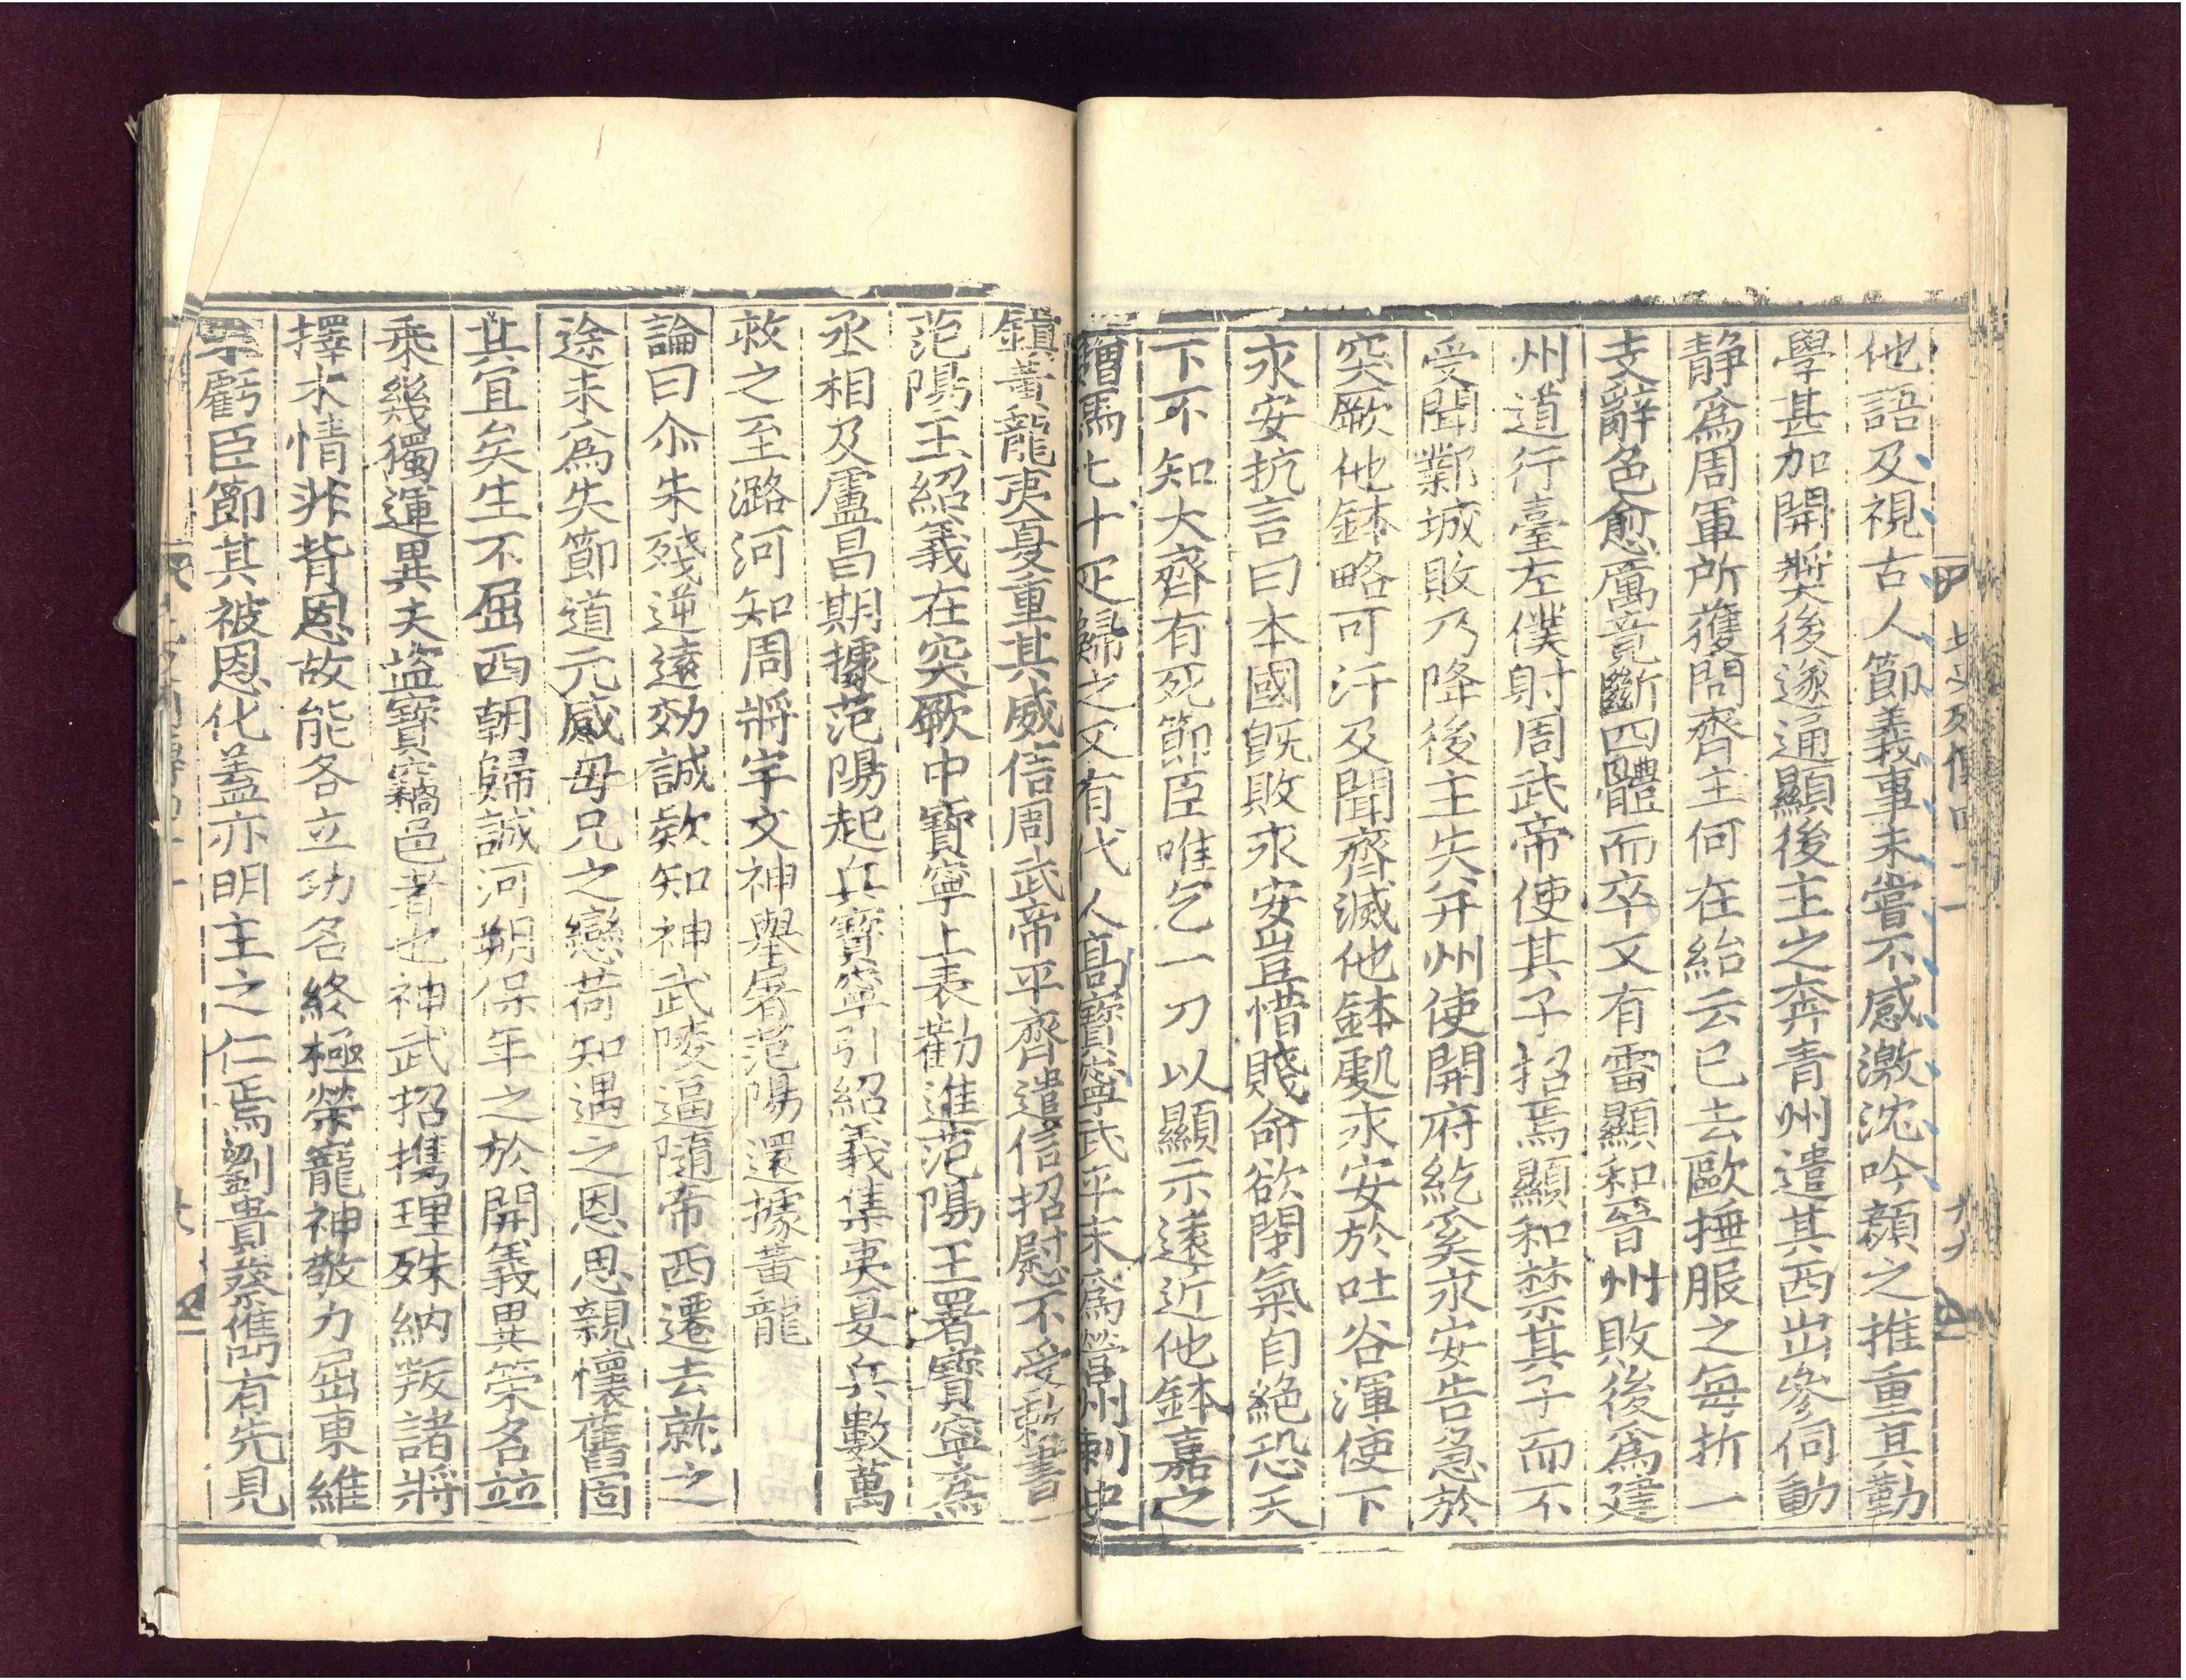 他語及視古人節義事未嘗不感激沈吟顔之推重其勤
學甚加開奬後遂通顯後主之奔青州遣其西出參伺動
静爲周軍所獲問齊主何在紿云已去歐捶服之每折一
支辭色愈厲竟斷四體而卒又有雷顯和晉州敗後爲建
州道行臺左僕射周武帝使其子招焉顯和禁其子而不
受聞鄴城敗乃降後主失并州使開府紇奚永安告急於
突厥他鉢略可汗及聞齊滅他鉢處永安於吐谷渾使下
永安抗言曰本國旣敗永安豈惜賤命欲閉氣自絶恐天
下不知大齊有死節臣唯乞一刀以顯示遠近他鉢嘉之
贈馬七十疋歸之又有代人高寳寧武平末爲營州刺史
鎮黃龍夷夏重其威信周武帝平齊遣信招慰不受勑書
范陽王紹義在突厥中寳寧上表勸進范陽王署寳寧爲
丞相及盧昌期據范陽起兵寳寧引紹義集夷夏兵數萬
救之至潞河知周將宇文神舉屠范陽還據黃龍
論曰尒朱殘逆遠効誠欵知神武陵逼隨帝西遷去就之
途未爲失節道元感母兄之戀荷知遇之恩思親懷舊固
其宜矣生不屈西朝歸誠河朔保年之於開義異策名並
乘幾獨運異夫盗寳竊邑者也神武招攜理殊納叛諸將
擇木情非背恩故能各立功名終極榮寵神敬力屈東維
不虧臣節其被恩化蓋亦明主之仁焉劉貴蔡儁有先見